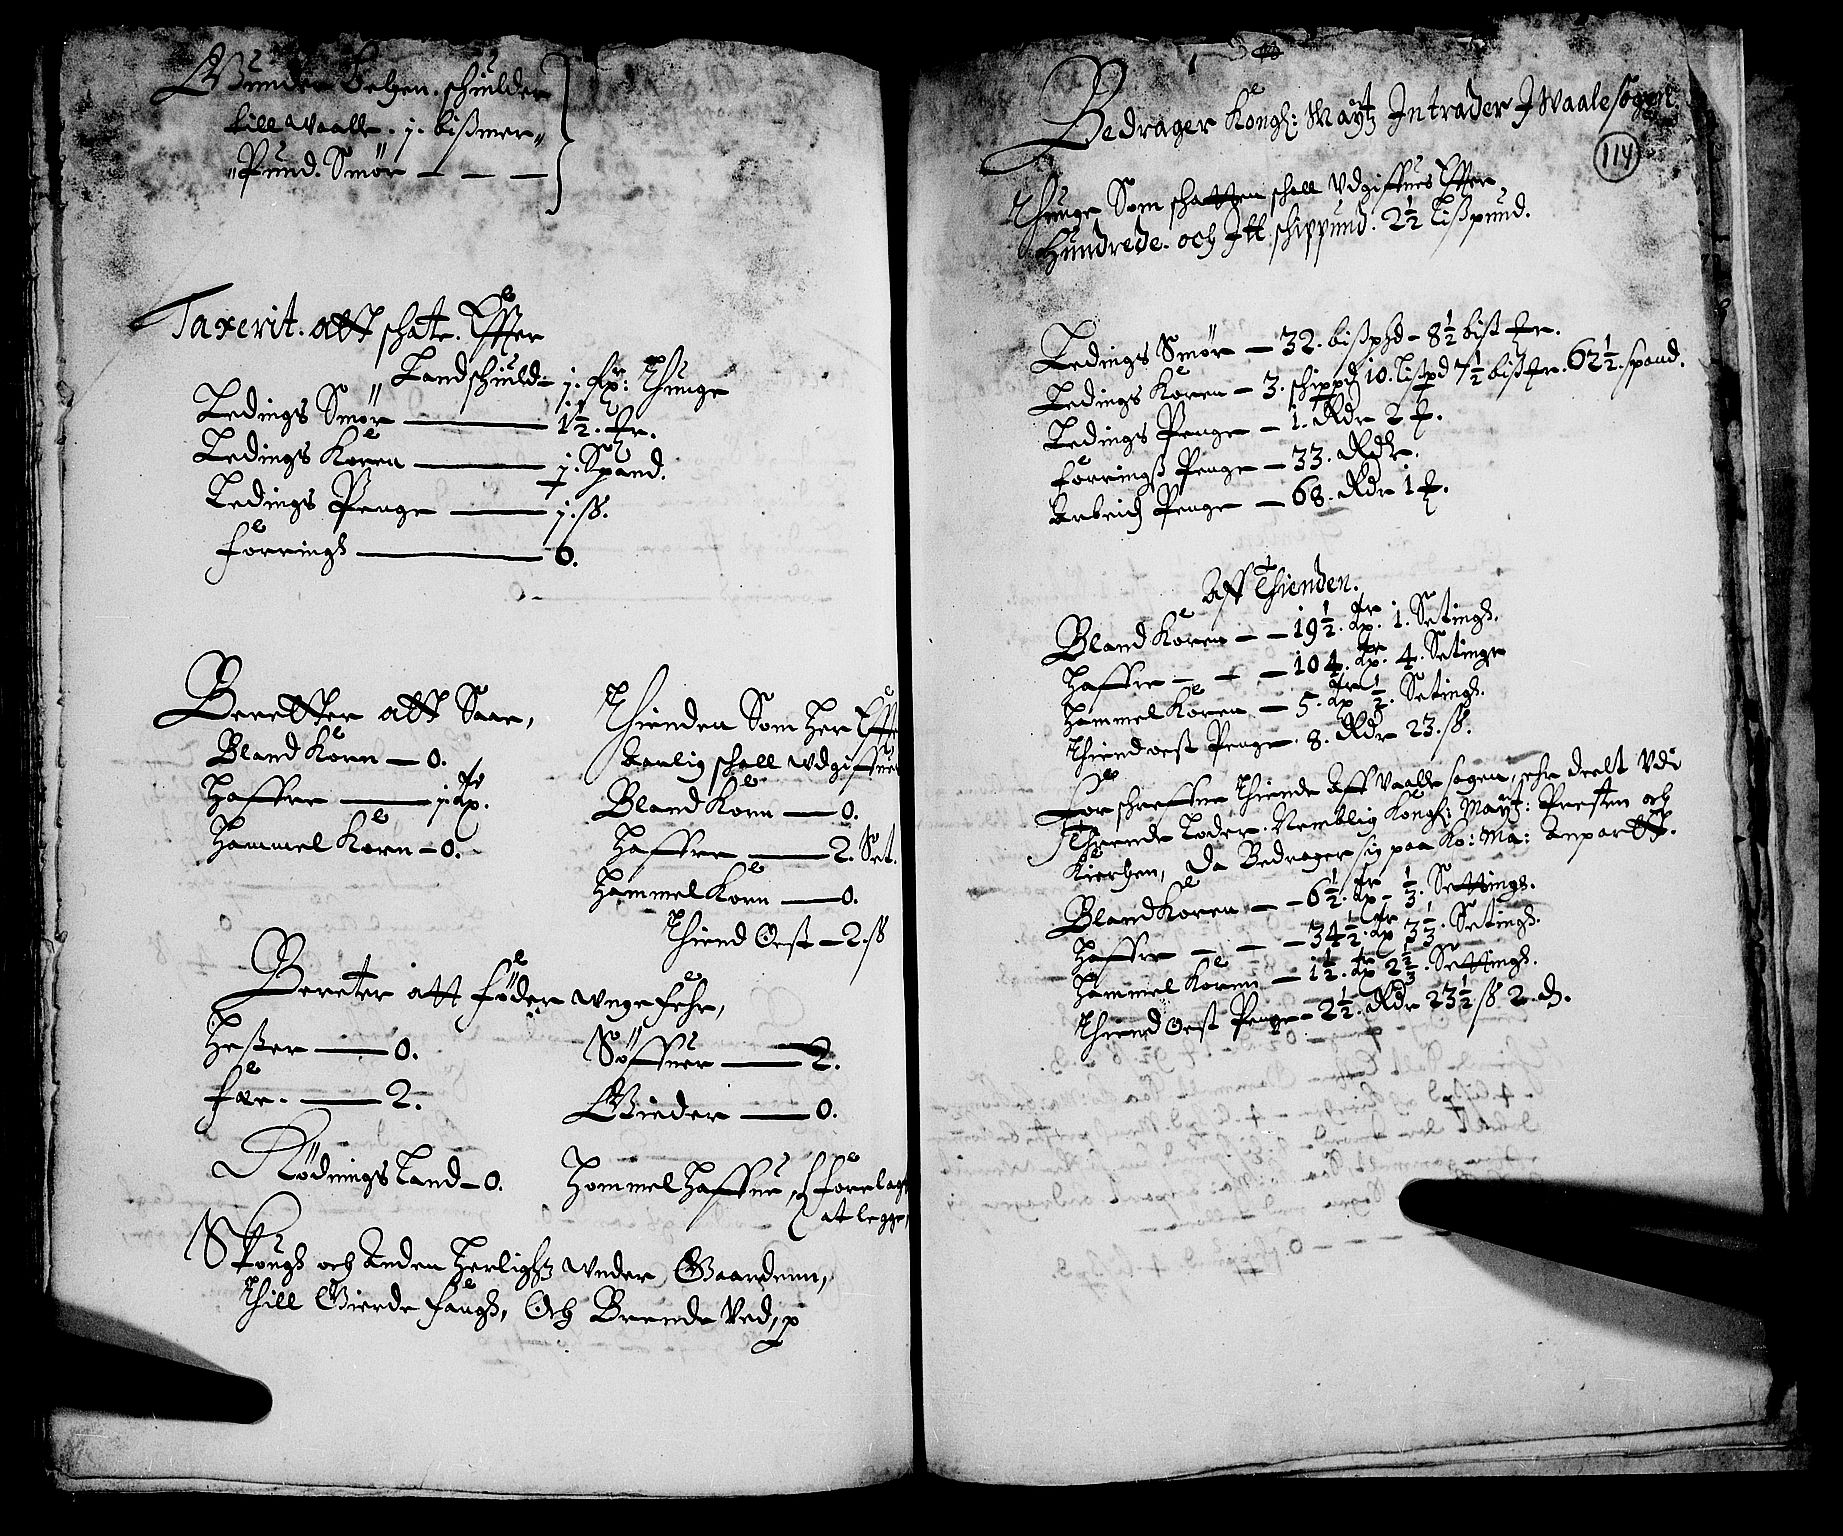 Wunder Oelgen. schulder
till Waalle. j. bissmer
Pund. Smør — — —
Taxerit. att schate. Effter
Landschuld — j. Hp: Thunge
Ledings Smør — 1½. mr.
Ledings Koren — j. Spand.
Ledings Penge — j. ss.
Førrings — 0.
Beretter att Saae,
Bland Korn — 0.
Haffre — j. Hp.
Hammel Korn — 0.
Thienden Som her Eff
Aarlig schall udgiffues
Bland Korn — 0.
Haffre — 2. Set.
Hammel Korn — 0.
Thiend Oest — 2. ss
Bereter att føder unge fehr,
Hester — 0.
Søffuer — 2.
Fæe. — 2.
Gieder — 0.
Rødnings Land — 0.
Hommel Haffue, forelagt
at legge,
Skougs och Anden Herligh: under Gaardenn,
Thill Gierde fangs, Och Brende Ved, p
Bedrager Kongl: Maytz Intrader I Waale sogen
114
Thunge Som schatten schall udgiffues Effter
Hundrede. och Itt schippund. 2½ Lisspund.
Ledings Smør — 32. bisspd — 8½ bist mr.
Ledings Koren — 3. schippd 10. Lisspd 7½ bist mr. 62½. spand.
Ledings Penge — 1. Rdr 2 mr.
Førrings Penge — 33. Rdr.
Arbeids Penge — 68. Rdr 1 mr.
Aff Thienden.
Bland Koren — — 19½. Hp. 1. Setings.
Haffre — — — 104. Hp. 4. Setinge
Hammel Koren — 5. Hp ½. Setings.
Thiend oest Penge. 8. Rdr 23. ss.
For schreffne Thiende Aff Vaalle sogen, ehr deelt Vdi
Thrende Loder. Nemblig Kongl: Mayt: Presten och
Kierchen, Da Bedrager sig paa Ko: Ma: Anpartt.
Bland Koren — — 6½. Hp — ⅓. Settings.
Haffre — — — 34½. Hp 3⅓. Setings.
Hammel Koren — 1½. Hp 2⅓. Settings.
Thiend Oest Penge — 2½. Rdr 23½ ss 2. d.